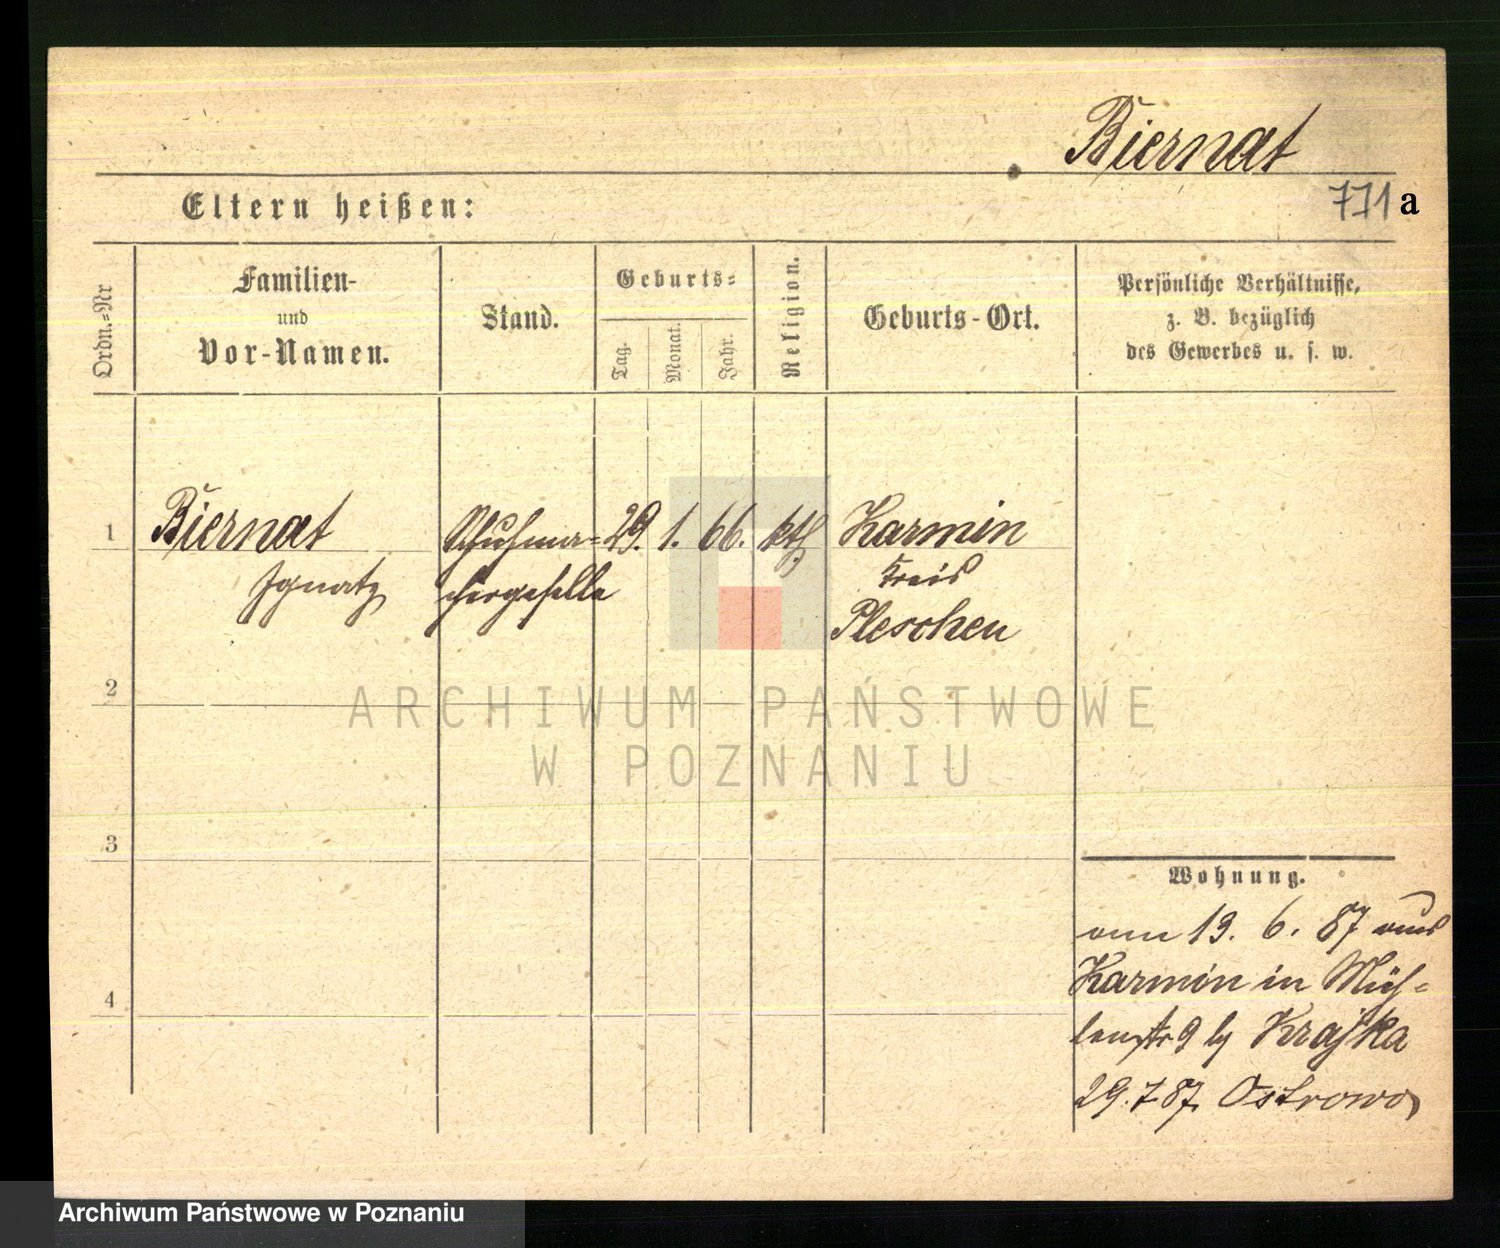 Biernat
771 a
Eltern heißen:
Ordn.-Nr
Familien-
und
Vor-Namen.
Stand.
Geburts-
Tag.
Monat.
Jahr.
Religion.
Geburts-Ort.
Persönliche Verhältnisse,
z. B. bezüglich
des Gewerbes u. s. w.
1
Biernat
Ignatz
Schuhma-
chergeselle
29. 1. 66. kth
Karmin
Kreis
Pleschen
2
3
4
ARCHIWUM PAŃSTWOWE
W POZNANIU
Wohnung.
am 13. 6. 87 aus
Karmin in Müh-
lenstr 9 by Krajka
29. 7 87. Ostrowo
Archiwum Państwowe w Poznaniu